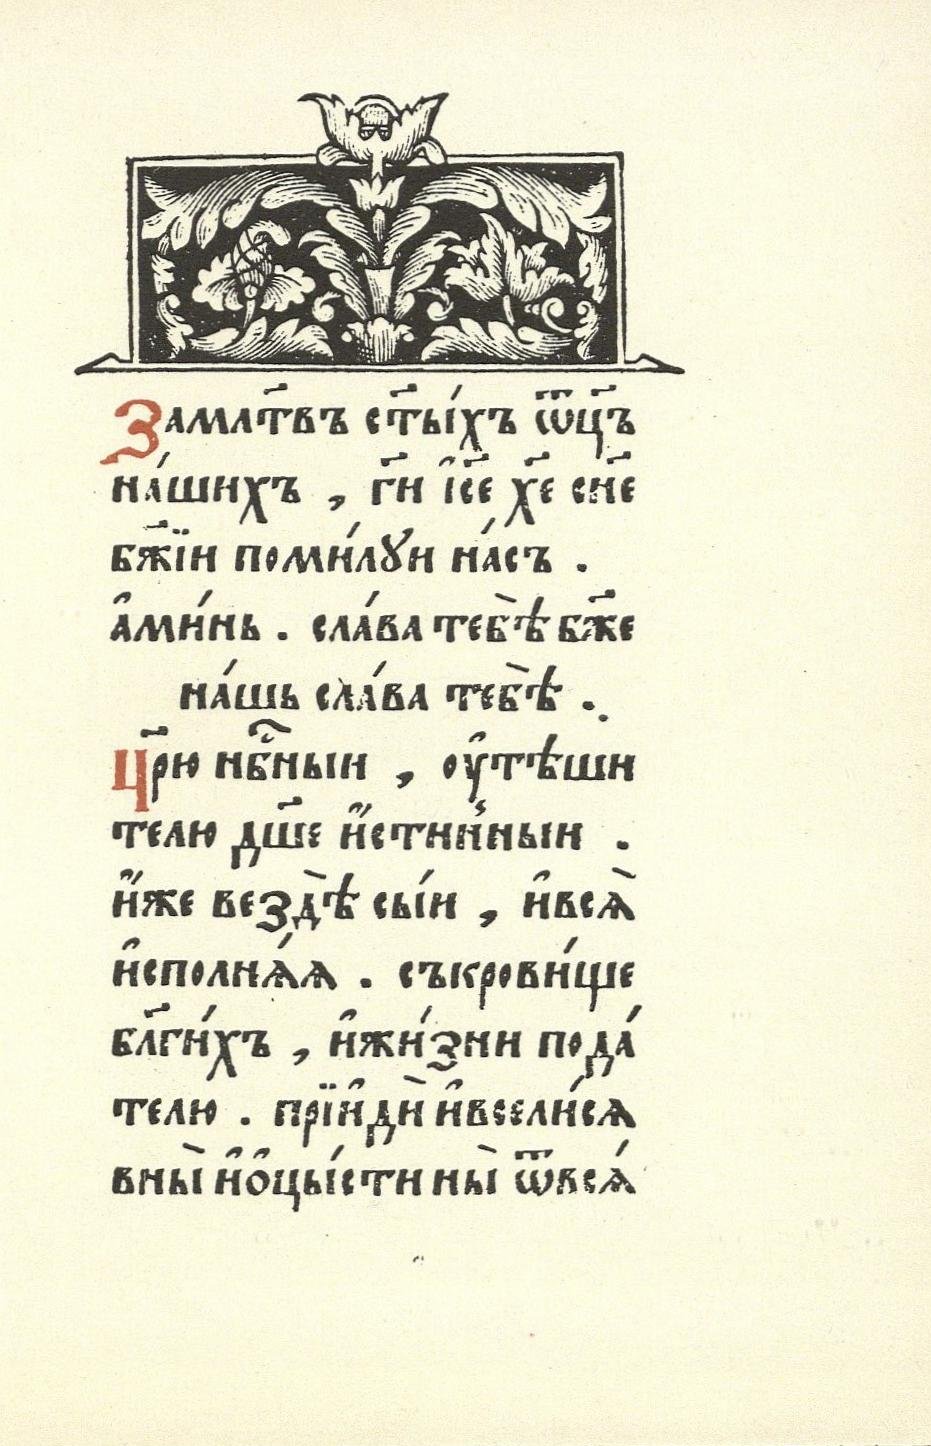 Замлт҃въ ст҃ы́хъ ѿц҃ъ
на́шихъ , гн҃и і҆се҃ хе҃ сн҃е
бж҃їи поми́лꙋи на́съ .
а҆ми́нь . сла́ва тебѣ̀ бж҃е
на́шь сла́ва тебѣ̀ .
Цр҃ю нбⷭ҇ныи , ѹ҆тѣши
телю дш҃е и҆́стинныи .
и҆́же вездѣ̀ сы́и , и҆всѧ̀
и҆сполнѧ́ѧ . съкрови́ще
бл҃ги́хъ , и҆жи́зни пода́
телю . прїи҆дѝ и҆всели́сѧ
вны̀ и҆ѡ҆цы́сти ны̀ ѿвсѧ́